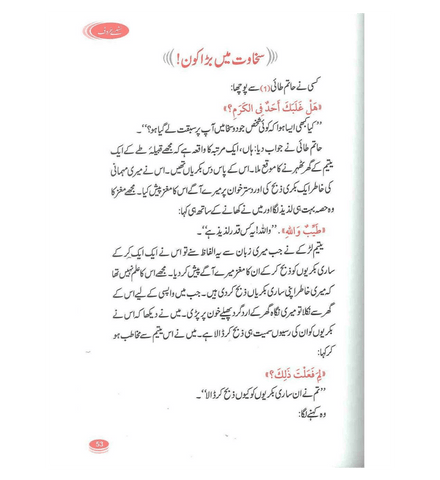 سنہرے حروف
سخاوت میں بڑا کون!
کسی نے حاتم طائی (1) سے پوچھا:
«هَلْ غَلَبَكَ أَحَدٌ فِي الْكَرَمِ؟»
’’کیا کبھی ایسا ہوا کہ کوئی شخص جود و سخا میں آپ پر سبقت لے گیا ہو؟‘‘۔
حاتم طائی نے جواب دیا: ہاں، ایک مرتبہ کا واقعہ ہے کہ مجھے قبیلۂ طے کے ایک
یتیم کے گھر ٹھہرنے کا موقع ملا۔ اس کے پاس دس بکریاں تھیں۔ اس نے میری مہمانی
کی خاطر ایک بکری ذبح کی اور دسترخوان پر میرے آگے اس کا مغز پیش کیا۔ مجھے مغز کا
وہ حصہ بہت ہی لذیذ لگا اور میں نے کھانے کے ساتھ ہی کہا:
«طَيِّبٌ وَاللّٰهِ». ’’واللہ! یہ کس قدر لذیذ ہے‘‘۔
یتیم لڑکے نے جب میری زبان سے یہ الفاظ سنے تو اس نے ایک ایک کر کے
ساری بکریوں کو ذبح کر کے ان کا مغز میرے آگے پیش کر دیا۔ مجھے اس کا علم نہیں تھا
کہ میری خاطر اپنی ساری بکریاں ذبح کر دی ہیں۔ جب میں واپسی کے لیے اس کے
گھر سے نکلا تو میری نگاہ گھر کے ارد گرد پھیلے خون پر پڑی۔ میں نے دیکھا کہ اس نے
بکریوں کو ان کی رسیوں سمیت ہی ذبح کر ڈالا ہے۔ میں نے اس یتیم سے مخاطب ہو
کر کہا:
«لِمَ فَعَلْتَ ذَلِكَ؟»
’’تم نے ان ساری بکریوں کو کیوں ذبح کر ڈالا‘‘۔
وہ کہنے لگا:
53